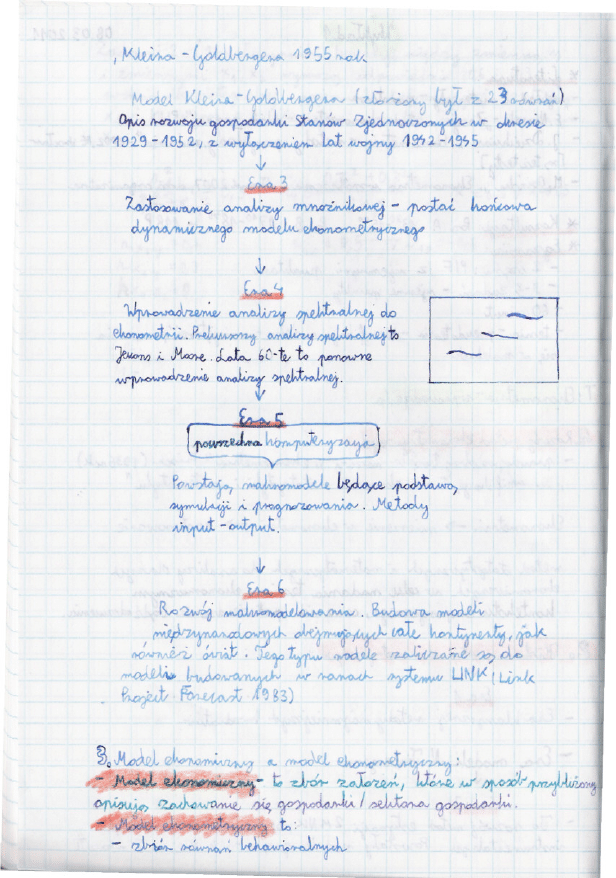 , Kleina - Goldbergera 1955 rok
Model Kleina - Goldbergera (złożony był z 23 równań)
Opis rozwoju gospodarki Stanów Zjednoczonych w okresie
1929 - 1952, z wyłączeniem lat wojny 1942 - 1945
↓
Era 3
Zastosowanie analizy mnożnikowej - postać końcowa
dynamicznego modelu ekonometrycznego
↓
Era 4
Wprowadzenie analizy spektralnej do
ekonometrii. Prekursorzy analizy spektralnej to
Jevons i Moore. Lata 60-te to ponowne
wprowadzenie analizy spektralnej.
↓
Era 5
powszechna komputeryzacja
Powstają makromodele będące podstawą
symulacji i prognozowania. Metody
input - output.
↓
Era 6
Rozwój makromodelowania. Budowa modeli
międzynarodowych obejmujących całe kontynenty, jak
również świat. Tego typu modele zaliczane są do
modeli budowanych w ramach systemu LINK (Link
Project Forecast 1983)
3. Model ekonomiczny a model ekonometryczny:
- Model ekonomiczny - to zbiór założeń, które w sposób przybliżony
opisują zachowanie się gospodarki / sektora gospodarki.
- Model ekonometryczny to:
- zbiór równań behawioralnych